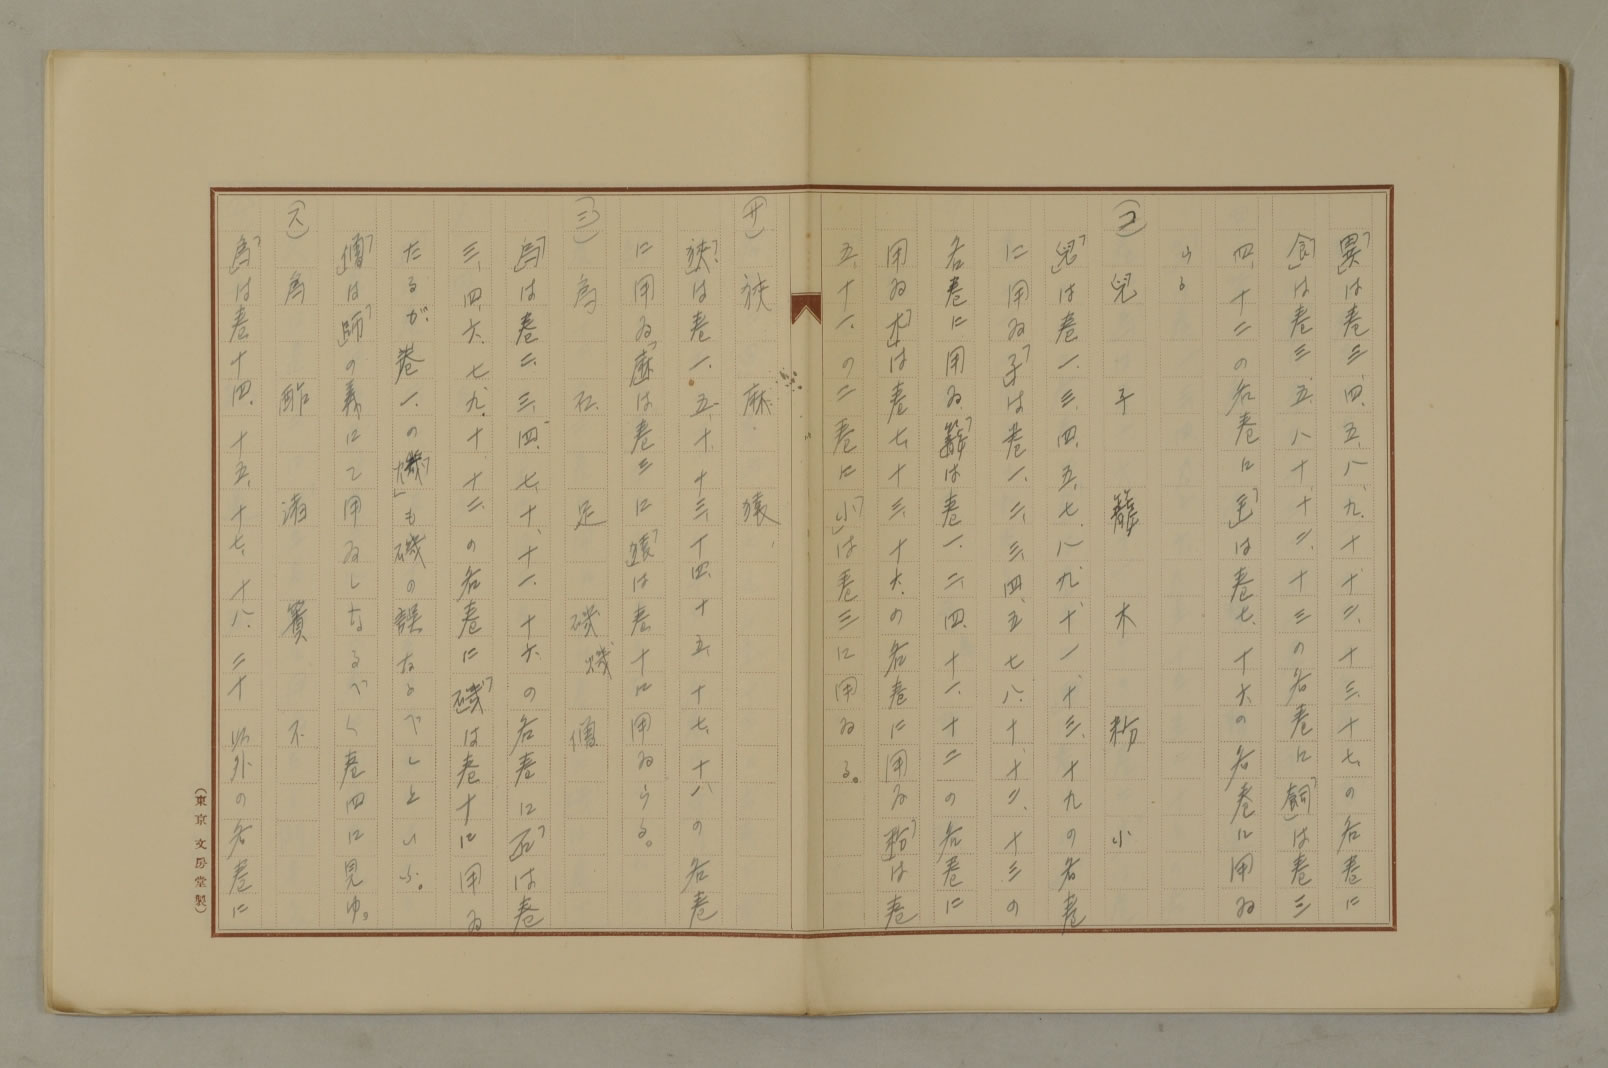 「異」は巻三、四、五、八、九、十、十二、十三、十七、の各巻に
「食」は巻三、五、八、十、十二、十三の各巻に「飼」は巻三
四、十二の各巻に「毛」は巻七、十六の各巻に用ゐ
らる
(コ) 兒 子 籠 木 粉 小
「兒」は巻一、三、四、五、七、八、九、十、一、十三、十九の各巻
に用ゐ「子」は巻一、二、三、四、五、七、八、十、十二、十三の
各巻に用ゐ「籠」は巻一、二、四、十一、十二の各巻に
用ゐ「木」は巻七、十三、十六、の各巻に用ゐ「粉」は巻
五、十一、の二巻に「小」は巻三に用ゐる。
(サ) 狭 麻 猿
「狭」は巻一、五、十、十三、十四、十五、十七、十八の各巻
に用ゐ「麻」は巻三に「猿」は巻十に用ゐらる。
(シ) 為 石 足 磯 僧
「為」は巻二、三、四、七、十、十一、十六、の各巻に「石」は巻
三、四、六、七、九、十、十二、の各巻に「磯」は巻十に用ゐ
たるが、巻一、の「」も磯の誤なるべしといふ。
「僧」は「師」の義にて用ゐしなるべく巻四に見ゆ。
(ス) 為 酢 渚 簀 不
「為」は巻十四、十五、十七、十八、二十以外の各巻に
(東京 文房堂製)